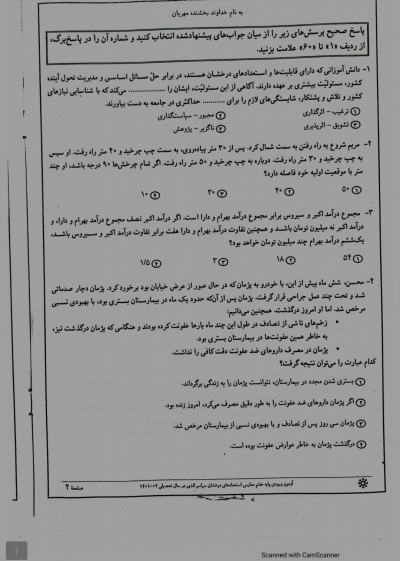 به نام خداوند بخشنده مهربان
پاسخ صحیح پرسش‌های زیر را از میان جواب‌های پیشنهادشده انتخاب کنید و شماره آن را در پاسخ‌برگ،
از ردیف «۱» تا «۶۰» علامت بزنید.
۱- دانش‌آموزانی که دارای قابلیت‌ها و استعدادهای درخشان هستند، در برابر حلّ مسائل اساسی و مدیریت تحول آینده
کشور، مسئولیت بیشتری بر عهده دارند. آگاهی از این مسئولیت، ایشان را .................. می‌کند که با شناسایی نیازهای
کشور و تلاش و پشتکار، شایستگی‌های لازم را برای ............ حداکثری در جامعه به دست بیاورند.
۱) ترغیب - اثرگذاری ۲) مجبور - سیاست‌گذاری
۳) تشویق - اثرپذیری ۴) ناگزیر - پژوهش
۲- مریم شروع به راه رفتن به سمت شمال کرد. پس از ۳۰ متر پیاده‌روی، به سمت چپ چرخید و ۴۰ متر راه رفت. او سپس
به چپ چرخید و ۳۰ متر راه رفت. دوباره به چپ چرخید و ۵۰ متر راه رفت. اگر تمام چرخش‌ها ۹۰ درجه باشد، او چند
متر با موقعیت اولیه خود فاصله دارد؟
۱) ۵۰ ۲) ۴۰ ۳) ۳۰ ۴) ۱۰
۳- مجموع درآمد اکبر و سیروس برابر مجموع درآمد بهرام و دارا است. اگر درآمد اکبر نصف مجموع درآمد بهرام و دارا، و
درآمد اکبر نه میلیون تومان باشد و همچنین تفاوت درآمد بهرام و دارا هفت برابر تفاوت درآمد اکبر و سیروس باشد،
یک‌ششم درآمد بهرام چند میلیون تومان خواهد بود؟
۱) ۵۴ ۲) ۱۸ ۳) ۳ ۴) ۱/۵
۴- محسن، شش ماه پیش از این، با خودرو به پژمان که در حال عبور از عرض خیابان بود برخورد کرد. پژمان دچار صدماتی
شد و تحت چند عمل جراحی قرار گرفت. پژمان پس از آن‌که حدود یک ماه در بیمارستان بستری بود، با بهبودی نسبی
مرخص شد. اما او امروز درگذشت. همچنین می‌دانیم:
• زخم‌های ناشی از تصادف در طول این چند ماه بارها عفونت کرده بودند و هنگامی که پژمان درگذشت نیز،
به خاطر همین عفونت‌ها در بیمارستان بستری بود.
• پژمان در مصرف داروهای ضد عفونت دقت کافی را نداشت.
کدام عبارت را می‌توان نتیجه گرفت؟
۱) بستری شدن مجدد در بیمارستان، نتوانست پژمان را به زندگی برگرداند.
۲) اگر پژمان داروهای ضد عفونت را به طور دقیق مصرف می‌کرد، امروز زنده بود.
۳) پژمان سی روز پس از تصادف و با بهبودی نسبی از بیمارستان مرخص شد.
۴) درگذشت پژمان به خاطر عوارض عفونت بوده است.
آزمون ورودی پایه هفتم مدارس استعدادهای درخشان سراسر کشور در سال تحصیلی ۱۴۰۲-۱۴۰۱
صفحهٔ ۲
1
Scanned with CamScanner